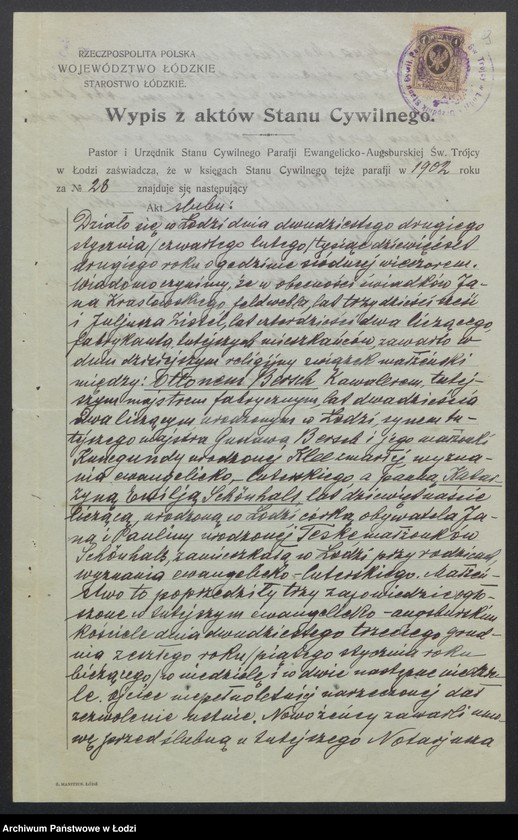 RZECZPOSPOLITA POLSKA
WOJEWÓDZTWO ŁÓDZKIE
STAROSTWO ŁÓDZKIE.
Wypis z aktów Stanu Cywilnego.
Pastor i Urzędnik Stanu Cywilnego Parafji Ewangelicko-Augsburskiej Św. Trójcy
w Łodzi zaświadcza, że w księgach Stanu Cywilnego tejże parafji w 1902 roku
za № 28 znajduje się następujący
Akt ślubu:
Działo się w Łodzi dnia dwudziestego drugiego
stycznia /czwartego lutego/ tysiąc dziewięćset
drugiego roku o godzinie siódmej wieczorem.
Wiadomo czynimy, że w obecności świadków Ja-
na feldwebla, lat trzydzieści sześć
i Juljusza lat czterdzieści dwa liczącego
fabrykanta, tutejszych mieszkańców, zawarto w
dniu dzisiejszym religijny związek małżeński
między: Ottonem Bersch, Kawalerem, tutej-
szym majstrem fabrycznym, lat dwadzieścia
dwa liczącym, urodzonym w Łodzi, synem tu-
tejszego majstra Gustawa Bersch i jego małżonki
Kunegundy urodzonej Klee zmarłej, wyzna-
nia ewangelicko-luterskiego a Panną Kata-
rzyną Emilją Schönhals, lat dziewiętnaście
liczącą, urodzoną w Łodzi, córką obywatela Ja-
na i Pauliny urodzonej Teske małżonków
Schönhals, zamieszkałą w Łodzi przy rodzicach,
wyznania ewangelicko-luterskiego. Małżeń-
stwo to poprzedziły trzy zapowiedzie ogło-
szone w tutejszym ewangelicko-augsburskim
kościele dnia dwudziestego trzeciego grud-
nia zeszłego roku /piątego stycznia roku
bieżącego/ w niedzielę i w dwie następne niedzie-
le. Ojciec niepełnoletniej narzeczonej dał
zezwolenie ustnie. Nowożeńcy zawarli umo-
wę przedślubną u tutejszego Notarjusza
Archiwum Państwowe w Łodzi